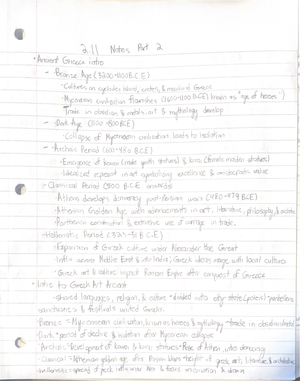 2.11 Notes, Part 2
• Ancient Greece intro
- Bronze Age (3200-1100 B.C.E)
• Cultures on cycladic island, crete, & mainland Greece
• Mycenaean civilization flourishes (1600-1100 BCE) known as "age of heroes"
• Trade in obsidian & metals, art & mythology develop
- Dark Age (1100-800 BCE)
• Collapse of Mycenaean civilization leads to isolation
- Archaic Period (800-480 BCE)
• Emergence of kouroi (nude youth statues) & korai (female maiden statues)
• Idealized in art symbolizing excellence & aristocratic value
- Classical Period (500 BCE onwards
• Athens develops democracy post-Persian wars (480-479 BCE)
• Athenian Golden Age with advancements in art, literature, philosophy, &
• Parthenon construction & extensive use of in trade.
- Hellenistic Period (323-31 B.C.E)
• Expansion of Greek culture under Alexander the Great
• Influence across Middle East & into India; Greek ideas merge with local cultures
• Greek art & culture impact Roman Empire after conquest of Greece
• Intro to Greek Art Ancient
- Shared languages, religion, & culture - divided into city-states
sanctuaries & festivals united Greeks.
Bronze - Mycenaean civilization, known as heroes & mythology - trade in obsidian
Dark - period of decline & isolation after Mycenaean collapse
Archaic - Development of kouroi & korai statues - Rise of Athens into democracy
Classical - Athenian golden age after Persian wars - height of greek art, literature, & architecture
Hellenistic - spread of greek influence